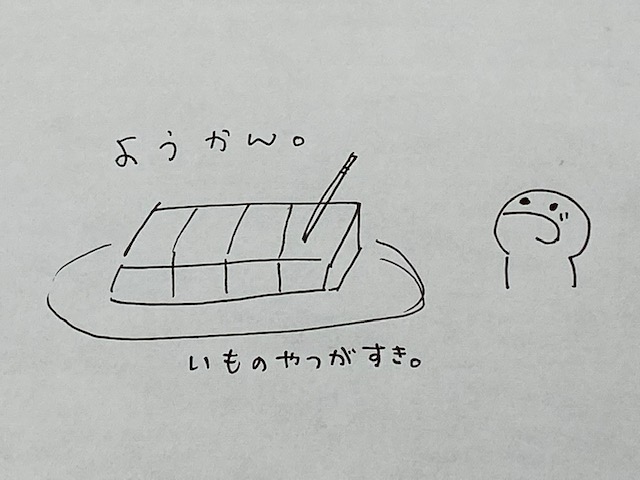 ようかん。
いものやつがすき。